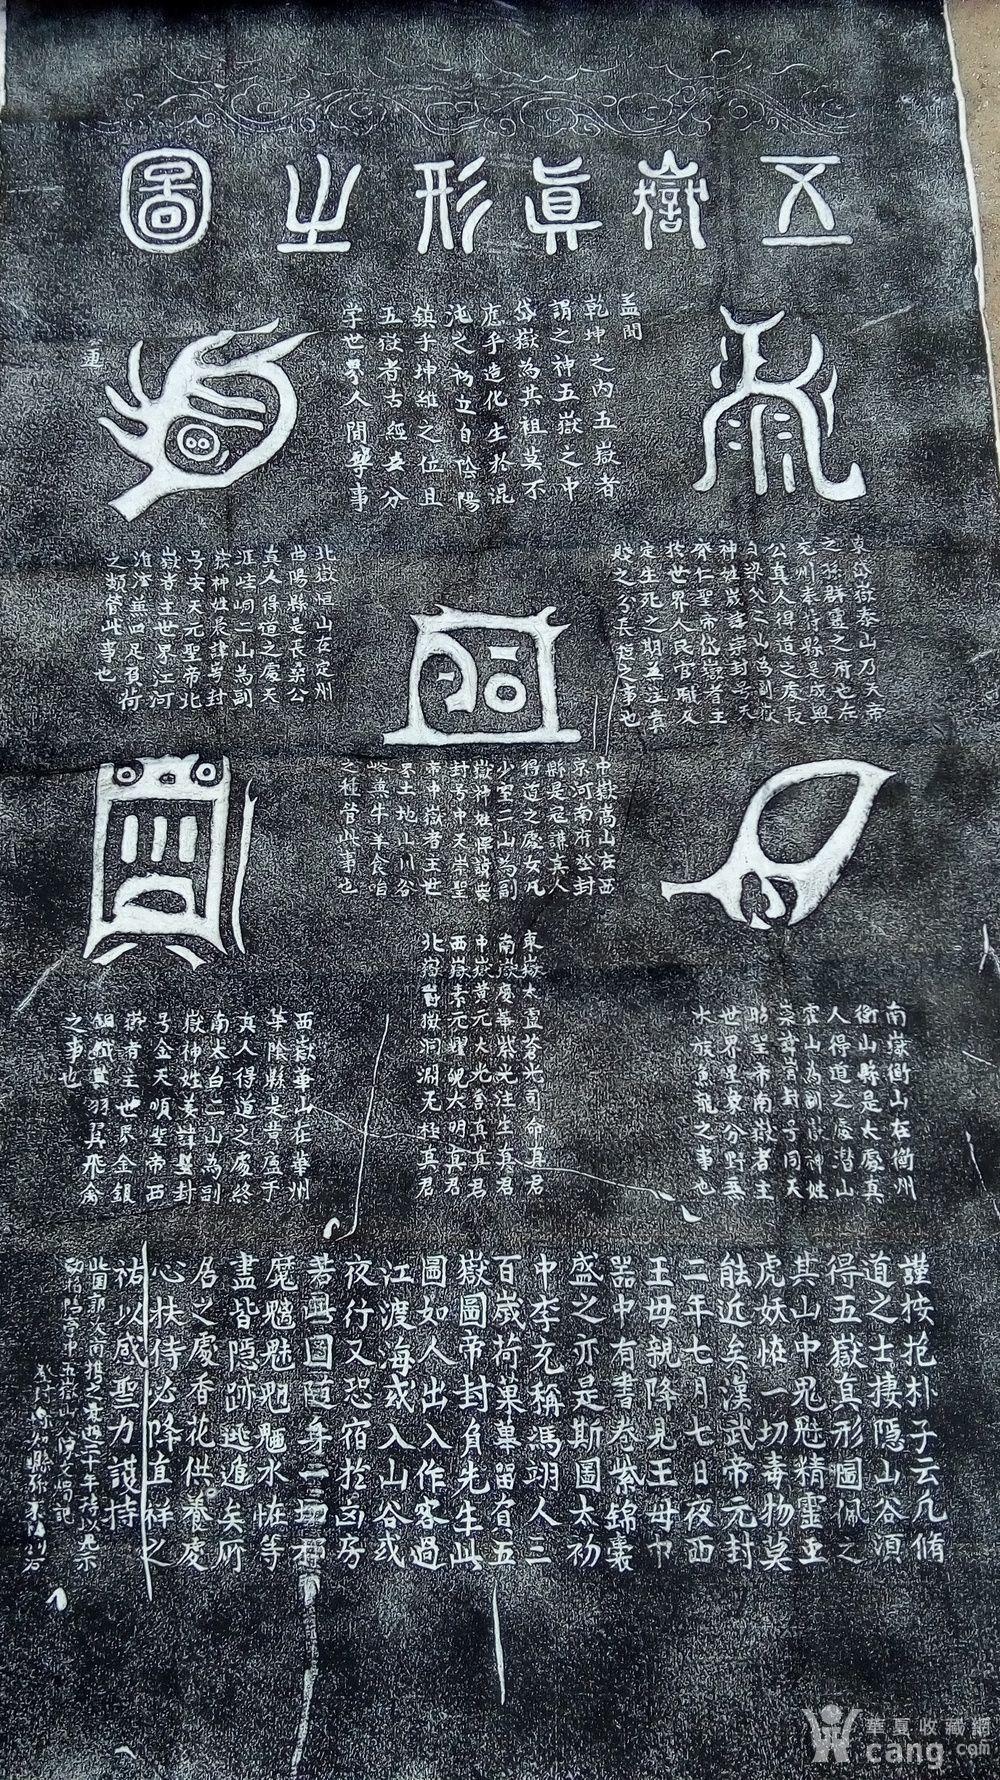 五嶽真形之圖
盖聞
乾坤之内五嶽者
謂之神五嶽之中
岱嶽為其祖莫不
應乎造化生於混
沌之初立自陰陽
鎮乎坤維之位且
五嶽者古經云分
掌世界人間等事
東岱嶽泰山乃天帝
之孫群靈之府也在
兖州奉符縣是成興
公真人得道之處長
白梁父二山為副嶽
神姓歲諱崇封号天
齊仁聖帝岱嶽者主
於世界人民官職及
定生死之期兼注貴
賤之分長短之事也
北嶽恒山在定州
曲陽縣是長桑公
真人得道之處天
涯崆峒二山為副
嶽神姓晨諱咢封
号安天元聖帝北
嶽者主世界江河
淮濟兼四足負荷
之類管此事也
中嶽嵩山在西
京河南府登封
縣是寇謙真人
得道之處女几
少室二山為副
嶽神姓惲諱
封号中天崇聖
帝中嶽者主世
界土地山川谷
峪兼牛羊食啗
之種管此事也
南嶽衡山在衡州
衡山縣是太處真
人得道之處潜山
霍山為副嶽神姓
崇諱 封号司天
昭聖帝南嶽者主
世界星象分野兼
水族魚龍之事也
西嶽華山在華州
華陰縣是黄盧子
真人得道之處終
南太白二山為副
嶽神姓姜諱 封
号金天順聖帝西
嶽者主世界金銀
銅鐵兼羽翼飛禽
之事也
東嶽太靈蒼光司命真君
南嶽慶華紫光注生真君
中嶽黄元大光含真真君
西嶽素元耀魄大明真君
北嶽欝微洞淵无極真君
謹按抱朴子云凡脩
道之士棲隱山谷須
得五嶽真形圖佩之
其山中鬼魅精靈虫
虎妖恠一切毒物莫
能近矣漢武帝元封
二年七月七日夜西
王母親降見王母巾
器中有書卷紫錦囊
盛之亦是斯圖太初
中李充稱馮翊人三
百歲荷菓畢留負五
嶽圖帝封負先生此
圖如人出入作客過
江渡海或入山谷或
夜行又恐宿於凶房
若此圖隨身一切邪
魔魑魅魍魎水恠等
盡皆隱跡逃遁矣所
居之處香花供養虔
心扶侍必降真祥之
祐以感聖力護持